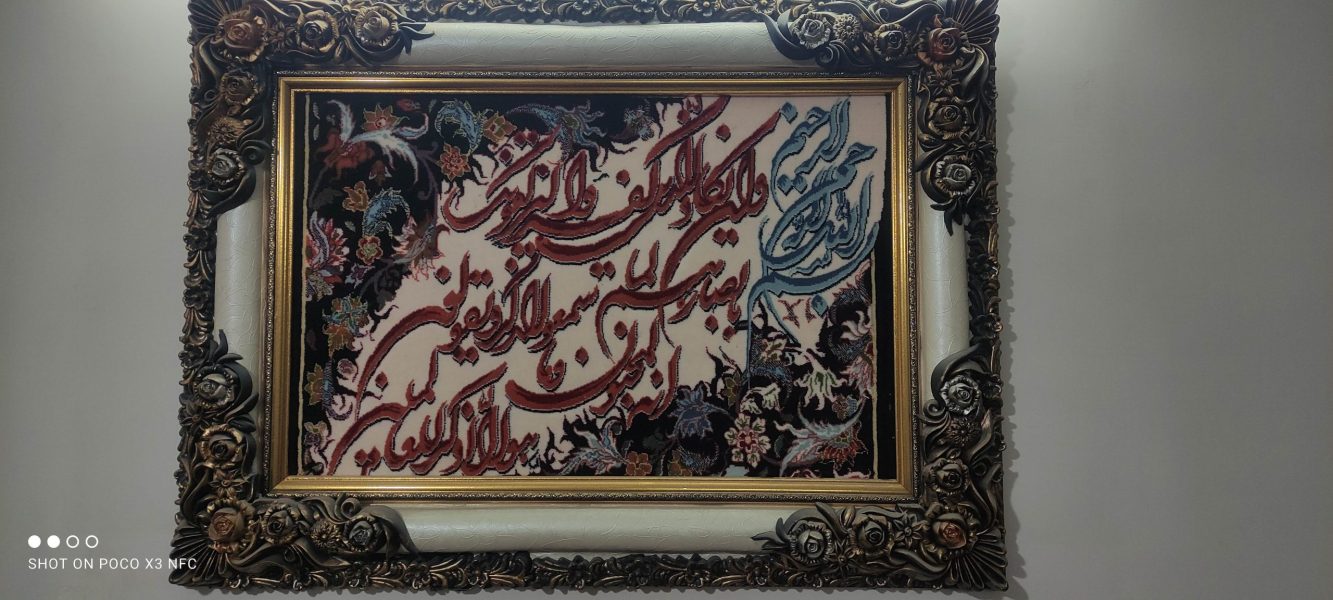 بسم الله الرحمن الرحیم
وان یکاد الذین کفروا لیزلقونک
بابصارهم لما سمعوا الذکر و یقولون
انه لمجنون و ما
هو الا ذکر للعالمین
SHOT ON POCO X3 NFC